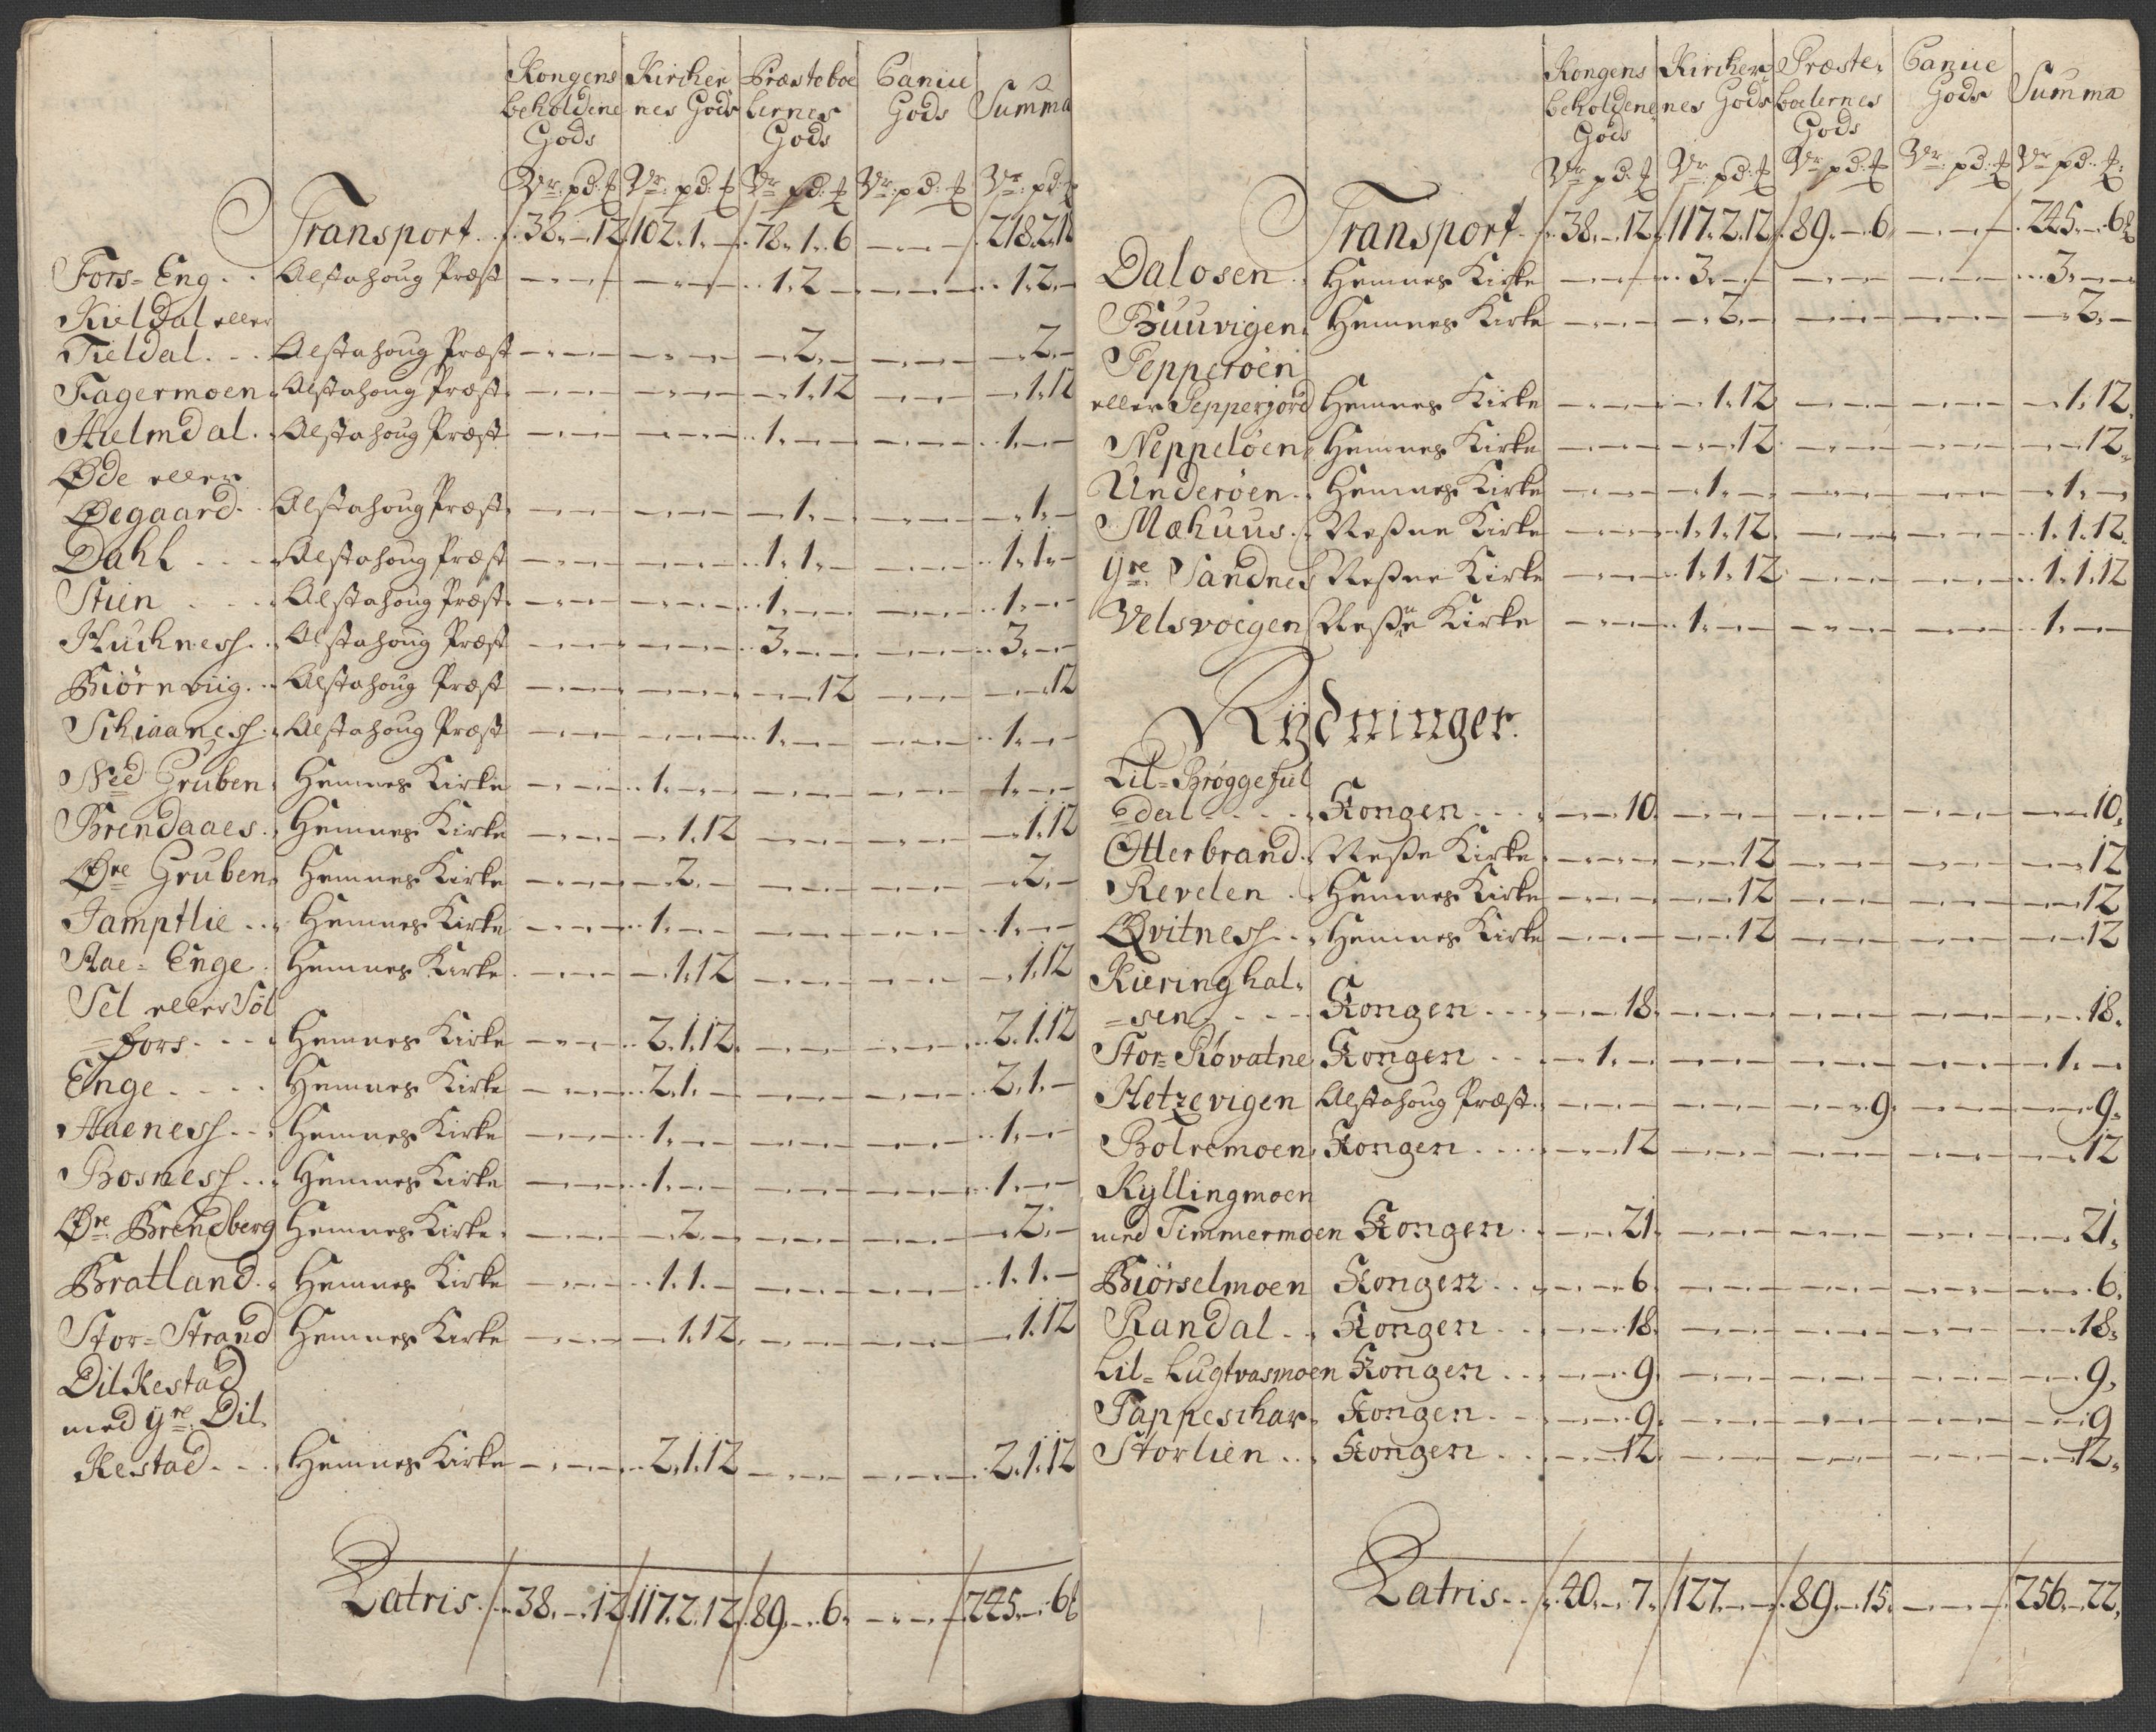 Kongens Kircher Præsteboe Canue
beholdene nes Gods lernes Gods Summa
Gods Gods
Vr: pd: ℔ Vr: pd: ℔ Vr pd: ℔ Vr: pd: ℔ Vr: pd: ℔
Transport . . 38. – 12 102. 1. – 78. 1. 6 – – – 218. 2. 18
Fors= Eng . . Alstahoug Præst – – – – – – 1. 2 – – – 1. 2. –
Kieldal eller
Tieldal . . . Alstahoug Præst – – – – – – – 2. – – – – – 2. –
Fagermoen . Alstahoug Præst – – – – – – – 1. 12 – – – – 1. 12
Hielmdal . . Alstahoug Præst – – – – – – 1. – – – – – 1. – –
Øde eller
Øegaard . Alstahoug Præst – – – – – – – 1. – – – – – 1. –
Dahl . . . Alstahoug Præst – – – – – – 1. 1. – – – – 1. 1. –
Stien . . . Alstahoug Præst – – – – – – 1. – – – – – 1. – –
Huchnesh . . Alstahoug Præst – – – – – – 3. – – – – – 3. – –
Biörnviig . . Alstahoug Præst – – – – – – – – 12 – – – – – 12
Schiaanesh . Alstahoug Præst – – – – – – 1. – – – – – 1. – –
Ned Gruben . Hemnes Kirke – – – 1. – – – – – – – – 1. – –
Brendaaes . Hemnes Kirke – – – – 1. 12 – – – – – – – 1. 12
Øre Gruben . Hemnes Kirke – – – – 2. – – – – – – – – 2. –
Jamptlie . . Hemnes Kirke – – – 1. – – – – – – – – 1. – –
Aae= Enge . Hemnes Kirke – – – – 1. 12 – – – – – – – 1. 12
Sel eller Söl
=fors . . . Hemnes Kirke – – – 2. 1. 12 – – – – – – 2. 1. 12
Enge . . . . Hemnes Kirke – – – 2. 1. – – – – – – – 2. 1. –
Aaenesh . . . Hemnes Kirke – – – 1. – – – – – – – – 1. – –
Bosnesh . . . Hemnes Kirke – – – 1. – – – – – – – – 1. – –
Øre Brendberg Hemnes Kirke – – – – 2. – – – – – – – – 2. –
Bratland . . Hemnes Kirke – – – 1. 1. – – – – – – – 1. 1. –
Stor= Strand Hemnes Kirke – – – – 1. 12 – – – – – – – 1. 12
Dilkestad
med Yre Dil.
kestad . . . Hemnes Kirke – – – 2. 1. 12 – – – – – – 2. 1. 12
Latris . . 38. – 12 117. 2. 12 89. – 6. – – – 245. – 6
Kongens Kircher Præste. Canue
beholdene nes Gods boelernes Gods Summa
Gods Gods
Vr pd: ℔ Vr: pd: ℔ Vr pd: ℔ Vr: pd: ℔ Vr pd: ℔
Transport . . 38. – 12. 117. 2. 12. 89. – 6. – – – 245. – 6
Dalosen . Hemnes Kirke – – – 3. – – – – – – – – 3. – –
Buuvigen . Hemnes Kirke – – – – 2. – – – – – – – – 2. –
Pepperöen
eller Pepperjord Hemnes Kirke – – – – 1. 12 – – – – – – – 1. 12.
Neppelöen . Hemnes Kirke – – – – – 12 – – – – – – – – 12.
Underöen . . Hemnes Kirke – – – – 1. – – – – – – – – 1. –
Mæhuus . . Neßne Kirke – – – 1. 1. 12. – – – – – – 1. 1. 12.
Yre Sandnes Neßne Kirke – – – 1. 1. 12 – – – – – – 1. 1. 12
Velsvoegen Neßn Kirke – – – 1. – – – – – – – – 1. – –
Rÿdninger.
Lil= Bröggefiel
=dal . . . . Kongen . . . – – 10. – – – – – – – – – – – 10.
Otterbrand . Neßne Kirke . – – – – – 12 – – – – – – – – 12
Revelen . . Hemnes Kirke – – – – – 12 – – – – – – – – 12
Qvitnesh . . Hemnes Kirke – – – – – 12 – – – – – – – – 12
Kieringhal.
=sen . . . . Kongen . . . – – 18. – – – – – – – – – – – 18.
Stor= Rövatne Kongen . . . – 1. – – – – – – – – – – – 1. –
Hetzevigen Alstahoug Præst . – – – – – – – – 9. – – – – – 9.
Boltemoen . Kongen . . . – – 12 – – – – – – – – – – – 12
Kyllingmoen
med Timmermoen Kongen . . – – 21. – – – – – – – – – – – 21.
Biörselmoen Kongen . . – – 6. – – – – – – – – – – – 6.
Randal . . . Kongen . . – – 18. – – – – – – – – – – – 18.
Lil= Lugtvasmoen Kongen . . – – 9. – – – – – – – – – – – 9.
Tappeschar . Kongen . . – – 9. – – – – – – – – – – – 9
Storlien . . . Kongen . . – – 12. – – – – – – – – – – – 12.
Latris . . 40. – 7. 127. – – 89. – 15. – – – 256. – 22.